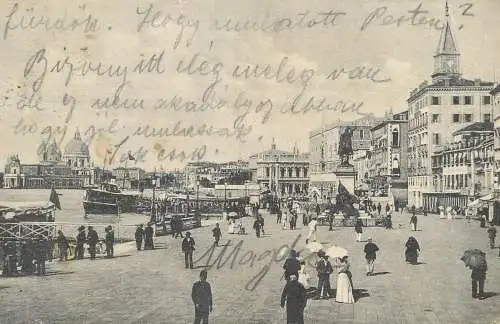 fürdők. Hogy mulatott Pesten?
Bizony itt elég meleg van
de ez nem akadályoz abban
hogy jól mulassak.
csók
Magda